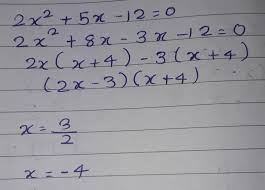 2x² + 5x - 12 = 0
2x² + 8x - 3x - 12 = 0
2x(x+4) - 3(x+4)
(2x-3)(x+4)
x = 3/2
x = -4